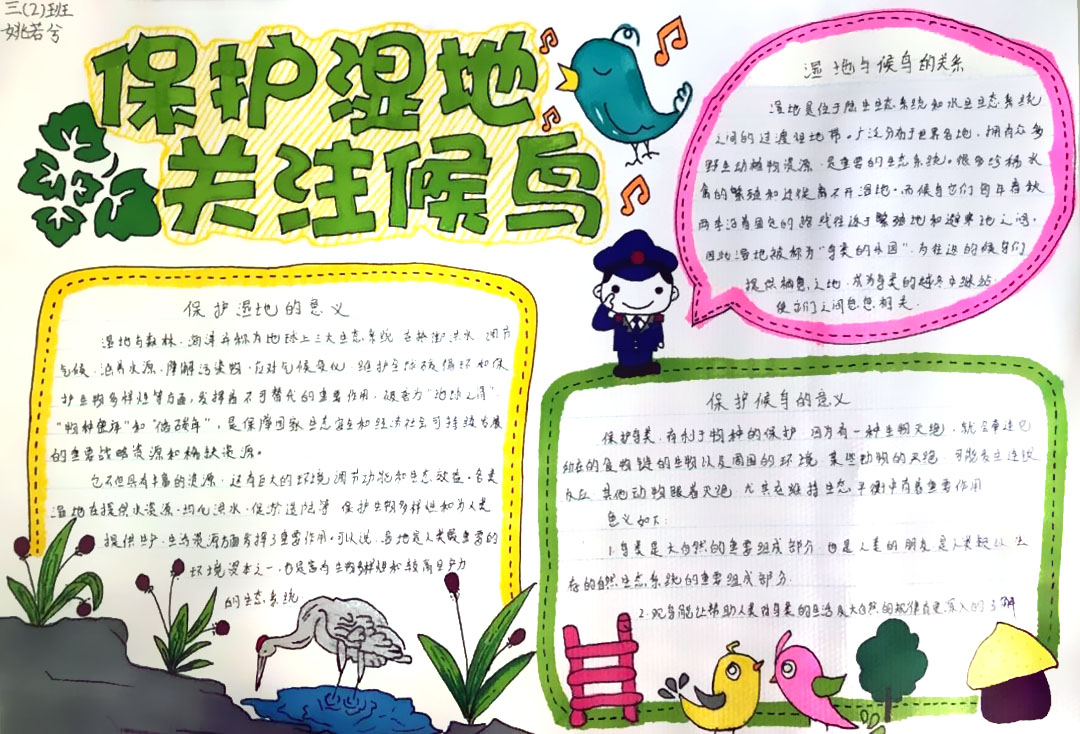 三(2)班
姚若兮
保护湿地
关注候鸟
湿地与候鸟的关系
湿地是位于陆生生态系统和水生生态系统
之间的过渡性地带。广泛分布于世界各地，拥有众多
野生动植物资源，是重要的生态系统。很多珍稀水
禽的繁殖和迁徙离不开湿地。而候鸟它们每年春秋
两季沿着固定的路线往返于繁殖地和避寒地之间。
因此湿地被称为“鸟类的乐园”，为往返的候鸟们
提供栖息之地，成为鸟类的越冬中继站
使它们之间息息相关。
保护湿地的意义
湿地与森林、海洋并称为地球上三大生态系统，在抵御洪水、调节
气候、涵养水源、降解污染物、应对气候变化、维护全球碳循环和保
护生物多样性等方面，发挥着不可替代的重要作用，被誉为“地球之肾”、
“物种宝库”和“储碳库”，是保障国家生态安全和经济社会可持续发展
的重要战略资源和稀缺资源。
它不但具有丰富的资源，还有巨大的环境调节功能和生态效益。各类
湿地在提供水资源、均化洪水、促淤造陆等 保护生物多样性和为人类
提供生产、生活资源方面发挥了重要作用。可以说，湿地是人类最重要的
环境资本之一，也是富有生物多样性和较高生产力
的生态系统
保护候鸟的意义
保护鸟类，有利于物种的保护，因为有一种生物灭绝，就会牵连它
所在的食物链的生物以及周围的环境，某些动物的灭绝，可能发生连锁
反应，其他动物跟着灭绝，尤其在维持生态平衡中有着重要作用
意义如下：
1.鸟类是大自然的重要组成部分，也是人类的朋友，是人类赖以生
存的自然生态系统的重要组成部分.
2.观鸟能让帮助人类对鸟类的生活及大自然的规律有更深入的了解